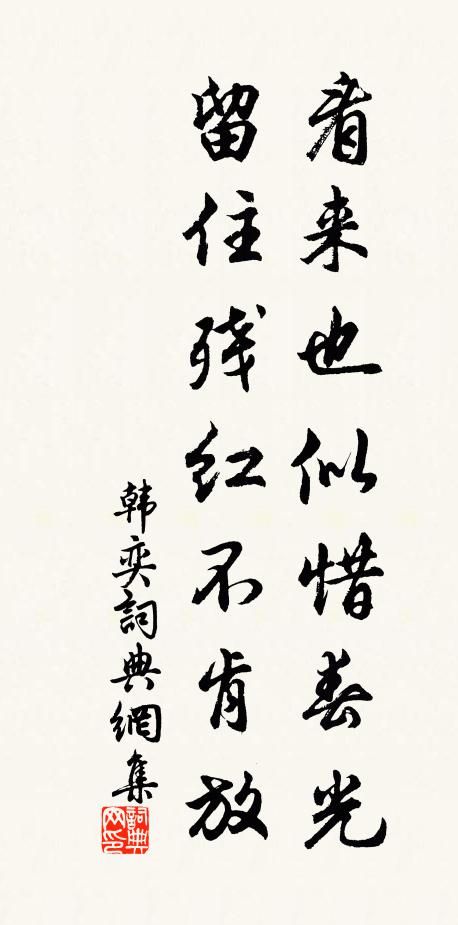 看来也似惜春光
留住残红不肯放
韩奕詞典網集
詞典网印